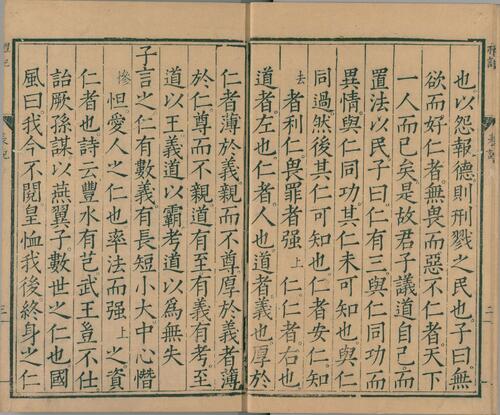 也以怨報德則刑戮之民也。子曰無
欲而好仁者無畏而惡不仁者天下
一人而已矣。是故君子議道自己。而
置法以民子曰。仁有三。與仁同功而
異情與仁同功。其仁未可知也。與仁
同過。然後其仁可知也。仁者安仁知
去者利仁畏罪者强上仁。仁者右也。
道者左也。仁者人也。道者義也厚於
仁者薄於義。親而不尊。厚於義者薄
於仁。尊而不親。道有至有義有考。至
道以王。義道以霸。考道以爲無失
子言之仁有數。義有長短小大。中心憯
慘怛愛人之仁也率法而强上之資
仁者也。詩云豐水有芑武王豈不仕
詒厥孫謀以燕翼子。數世之仁也。國
風曰。我今不閱。皇恤我後終身之仁